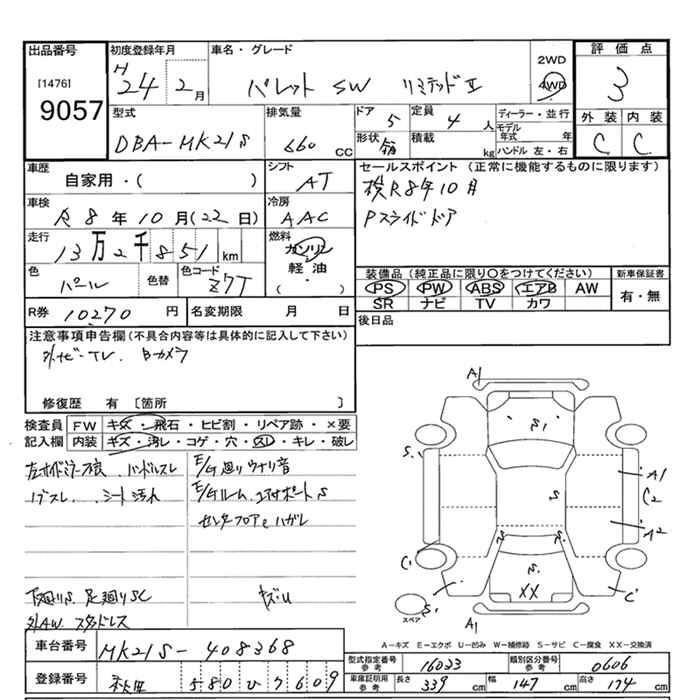 出品番号 初度登録年月 車名・グレード 2WD 評価点
[1476] H 24 2月 パレット SW リミテッドⅡ 4WD 3
9057
型式 排気量 ドア 5 定員 4人 ディーラー・並行 外装 内装
DBA-MK21S 660cc 形状 積載 kg モデル年式 年 C C
ハンドル 左・右
車歴 シフト セールスポイント(正常に機能するものに限ります)
自家用・( ) AT 検R8年10月
車検 冷房 Pスライドドア
R8年10月(22日) AAC
走行 燃料
13万2千851km ガソリン
軽油・( )
色 色替 色コード 装備品(純正品に限り○をつけてください) 新車保証書
パール Z7T PS PW ABS エアB AW 有・無
SR ナビ TV カワ
R券 10270円 名変期限 月 日 後日品
注意事項申告欄(不具合内容等は具体的に記入して下さい)
外ナビ・TV. Bカメラ
修復歴 有〔箇所 〕
検査員 FW キズ・飛石・ヒビ割・リペア跡・×要
記入欄 内装 キズ・汚レ・コゲ・穴・スレ・キレ・破レ
ハンドルスレ E/G廻りウナリ音
ノブスレ. シート汚れ E/Gルーム. コアサポートS
センターフロアeハガレ
下廻りS. 足廻りSC キズ・U
外AW スタッドレス
A1
S1
S.
A1
C2
S
A2
C1
S.
XX
C
S1
スペア
A1
A-キズ E-エクボ U-凹み W-補修跡 S-サビ C-腐食 XX-交換済
車台番号 MK21S-408368
型式指定番号 参考 16033 類別区分番号 参考 0606
登録番号 秋田 580 ひ 7609
車庫証明 参考 長さ 339cm 幅 147cm 高さ 174cm